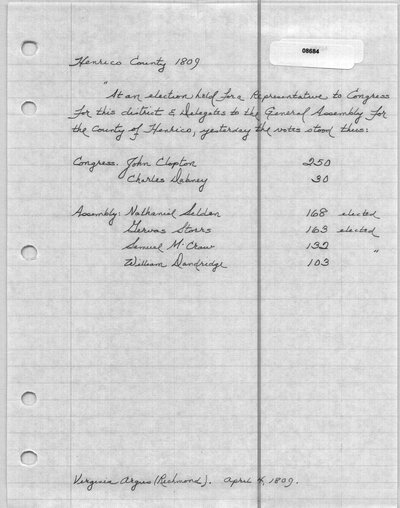 08684
Henrico County 1809
"At an election held for a Representative to Congress
for this district & Delegates to the General Assembly for
the County of Henrico, yesterday the votes stood thus:
Congress. John Clopton 250
Charles Dabney 30
Assembly: Nathaniel Selden 168 elected
Gervas Storrs 163 elected
Samuel McCraw 132 "
William Dandridge 103
Virginia Argus (Richmond). April 4, 1809.